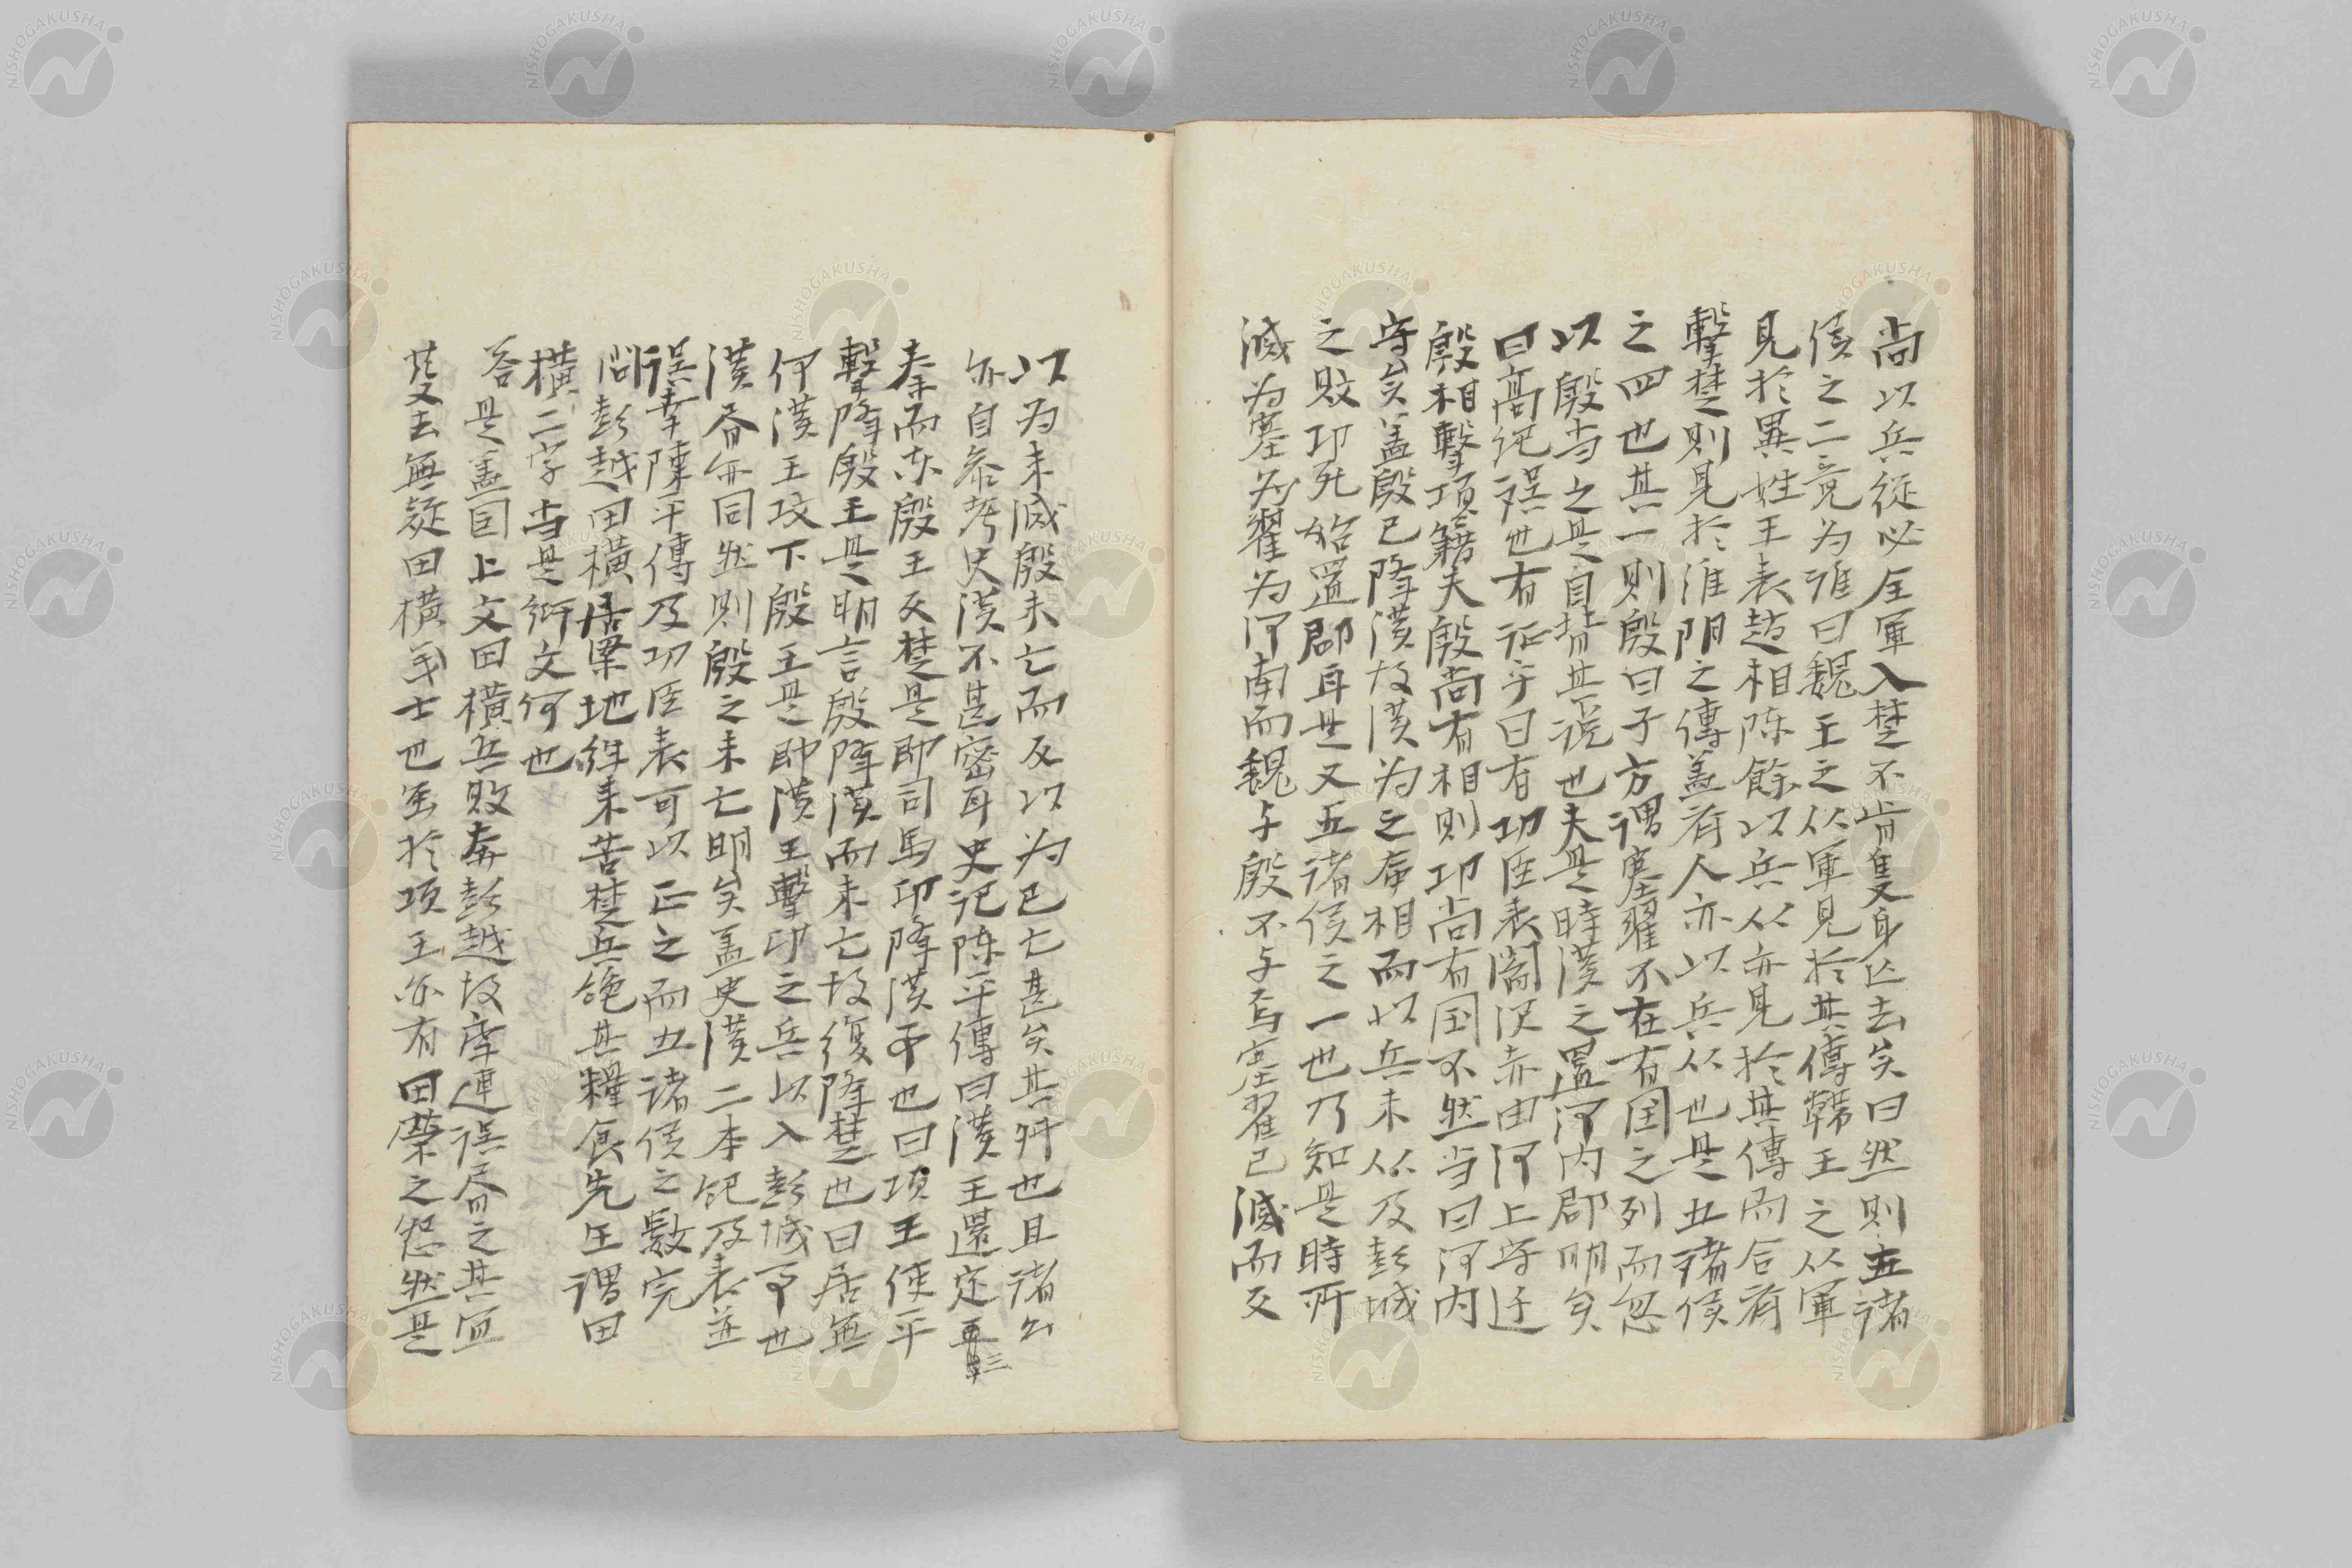 尚以兵従必全軍入楚不肯隻身亡去矣曰然則五諸
侯之二竟为誰曰魏王之从軍見於其傳韓王之从軍
見於異姓王表趙相陈餘以兵从亦見於其傳而合斉
擊楚則見於淮阴之傳盖斉人亦以兵从也是五諸侯
之四也其一則殷曰子方謂塞翟不在有国之列而忽
以殷当之是自揹其説也夫是時漢之置河内郡明矣
曰高紀誤也有证乎曰有功臣表閻沢赤由河上守迁
殷相擊項籍夫殷尚有相則卬尚有国不然当曰河内
守矣盖殷已降漢故漢为之存相而以兵来从及彭城
之敗卬死始置郡耳是又五諸侯之一也乃知是時所
滅为塞为翟为河南而魏与殷不与焉塞翟已滅而反
以为未滅殷未亡而反以为已亡甚矣其舛也且諸公
亦自参考史漢不甚密耳史记陈平傳曰漢王還定三
秦而东殷王反楚是即司馬卬降漢事也曰項王使平
擊降殷王是明言殷降漢而未亡故復降楚也曰居無
何漢王攻下殷王是即漢王擊卬之兵以入彭城事也
漢書亦同然則殷之未亡明矣盖史漢二本紀及表並
誤幸陳平傳及功臣表可以正之而五諸侯之数完
問彭越田横居梁地往来苦楚兵絶其糧食先生謂田
横二字当是衍文何也
荅是盖因上文田横兵敗奔彭越故牽連誤書之其宜
芟去無疑田横義士也虽於項王亦有田榮之怨然是